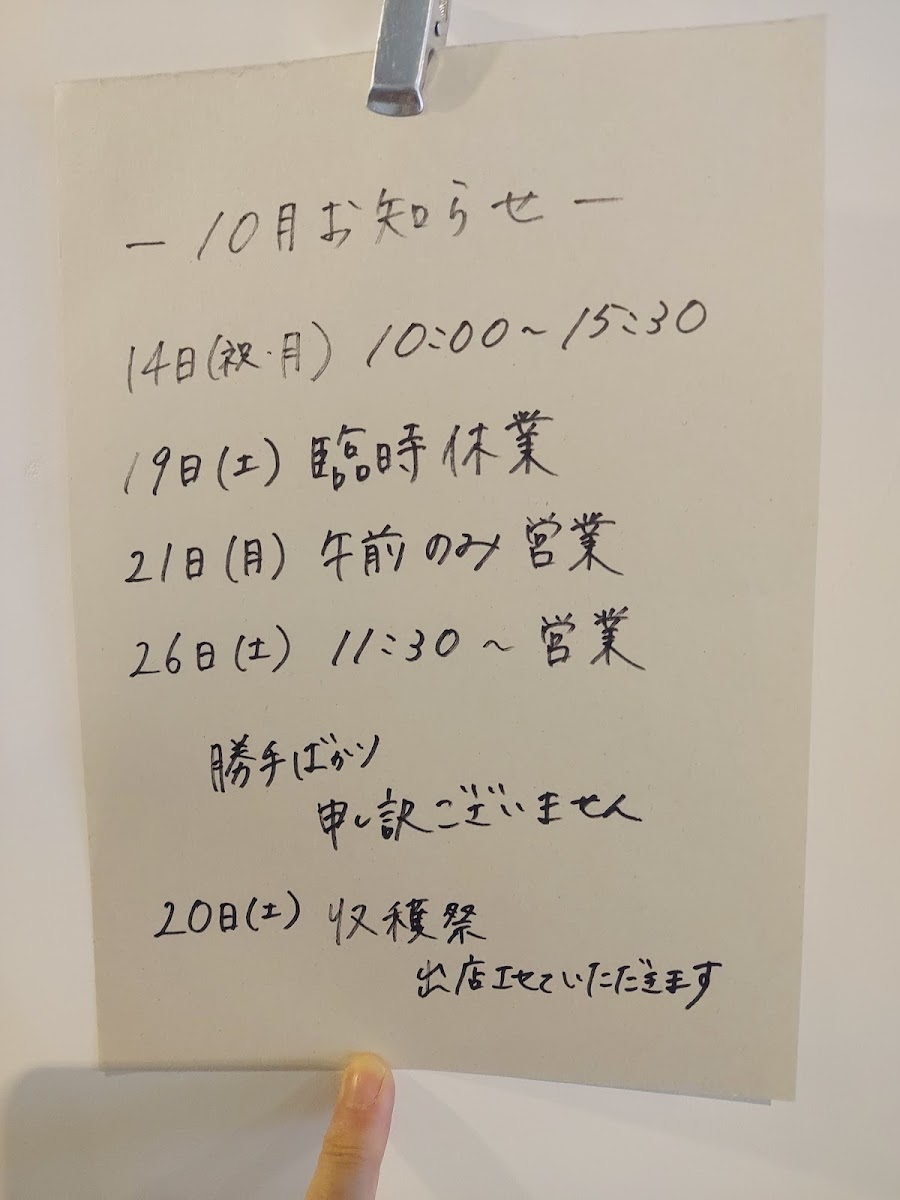 ー10月お知らせー
14日(祝・月) 10:00～15:30
19日(土) 臨時休業
21日(月) 午前のみ営業
26日(土) 11:30～営業
勝手ばかり
申し訳ございません
20日(土) 収穫祭
出店させていただきます